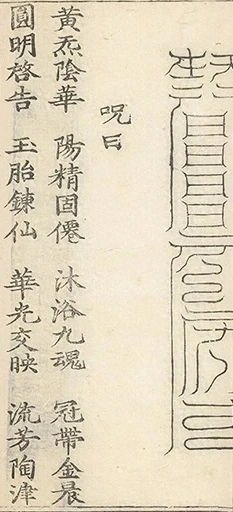 呪曰
黃炁陰華 陽精固僊 沐浴九魂 冠帶金晨
圓明啓告 玉胎鍊仙 華光交映 流芳陶津